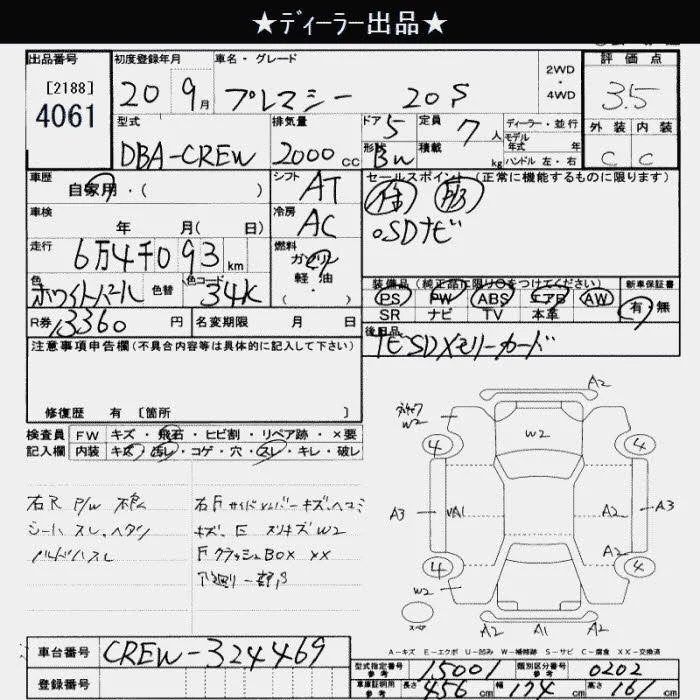 ★ﾃﾞｨｰﾗｰ出品★
出品番号
[2188]
4061
初度登録年月
20 9月
車名・グレード
プレマシー 20S
2WD
・
4WD
評価点
3.5
外装 内装
C C
型式
DBA-CREW
排気量
2000cc
ドア
5
定員
7人
形状
BW
積載
kg
ディーラー・並行
モデル
年式 年
ハンドル 左・右
車歴
自家用・( )
シフト
AT
車検
年 月( 日)
冷房
AC
走行
6万4千093km
燃料
ガソリン
軽油
( ・ )
色
ホワイトパール
色替
色コード
34K
R券
13360円
名変期限 月 日
セールスポイント(正常に機能するものに限ります)
。SDナビ
装備品(純正品に限り○をつけてください)
PS PW ABS エアB AW
SR ナビ TV 本革
新車保証書
有・無
後日品
SDメモリーカード
注意事項申告欄(不具合内容等は具体的に記入して下さい)
修復歴 有 〔箇所 〕
検査員 FW キズ・飛石・ヒビ割・リペア跡・×要
記入欄 内装 キズ・汚レ・コゲ・穴・スレ・キレ・破レ
右R P/W 不良
シート スレ、ヘタリ
右F サイドメンバー キズ、ヘコミ
キズ、E スリキズ W2
F クラッシュBOX XX
A2
W2
W2
4 4
A3 A1 A2 A3
A2
4 4
W2
スペア
A2 A1 A2
A-キズ E-エクボ U-凹み W-補修跡 S-サビ C-腐食 XX-交換済
車台番号
CREW-324469
登録番号
型式指定番号
参考
15001
類別区分番号
参考
0202
車庫証明用
参考
長さ 456cm 幅 174cm 高さ 161cm